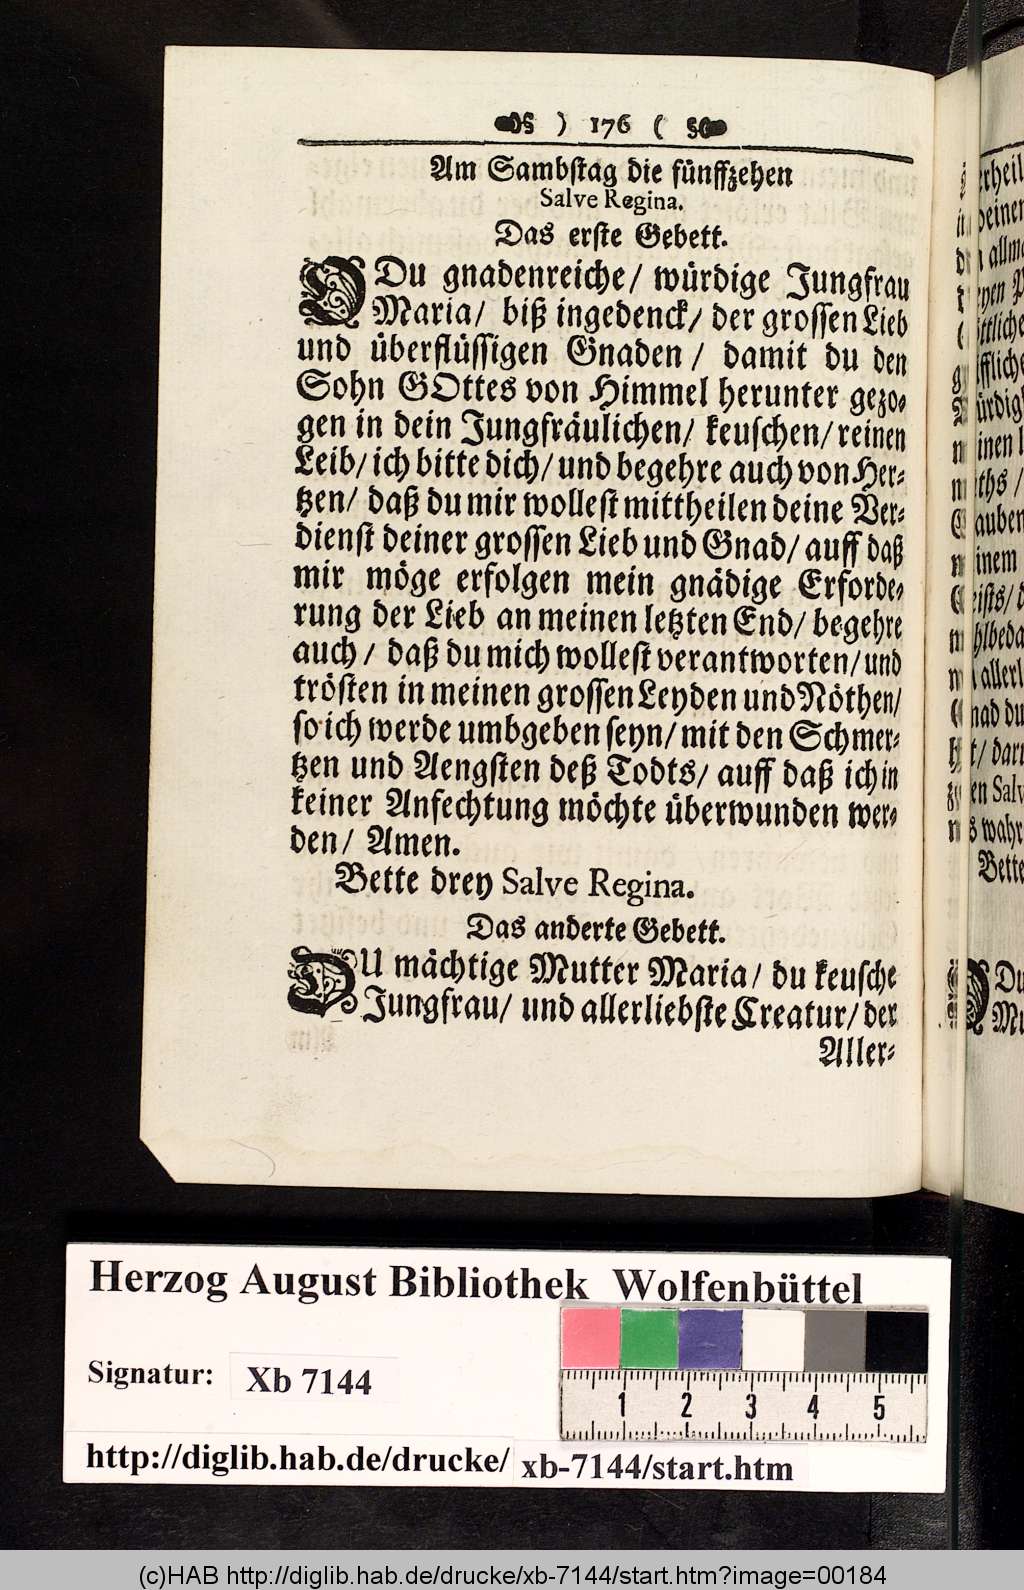 ) 176 (
Am Sambstag die fünffzehen
Salve Regina.
Das erste Gebett.
O Du gnadenreiche/ würdige Jungfrau
Maria/ biß ingedenck/ der grossen Lieb
und überflüssigen Gnaden / damit du den
Sohn GOttes von Himmel herunter gezo-
gen in dein Jungfräulichen/ keuschen/ reinen
Leib/ ich bitte dich/ und begehre auch von Her-
tzen/ daß du mir wollest mittheilen deine Ver-
dienst deiner grossen Lieb und Gnad/ auff daß
mir möge erfolgen mein gnädige Erforde-
rung der Lieb an meinen letzten End/ begehre
auch / daß du mich wollest verantworten/ und
trösten in meinen grossen Leyden und Nöthen/
so ich werde umbgeben seyn/ mit den Schmer-
tzen und Aengsten deß Todts/ auff daß ich in
keiner Anfechtung möchte überwunden wer-
den/ Amen.
Bette drey Salve Regina.
Das anderte Gebett.
DU mächtige Mutter Maria/ du keusche
Jungfrau/ und allerliebste Creatur/ der
Aller-
Herzog August Bibliothek Wolfenbüttel
Signatur: Xb 7144
1 2 3 4 5
http://diglib.hab.de/drucke/ xb-7144/start.htm
(c)HAB http://diglib.hab.de/drucke/xb-7144/start.htm?image=00184